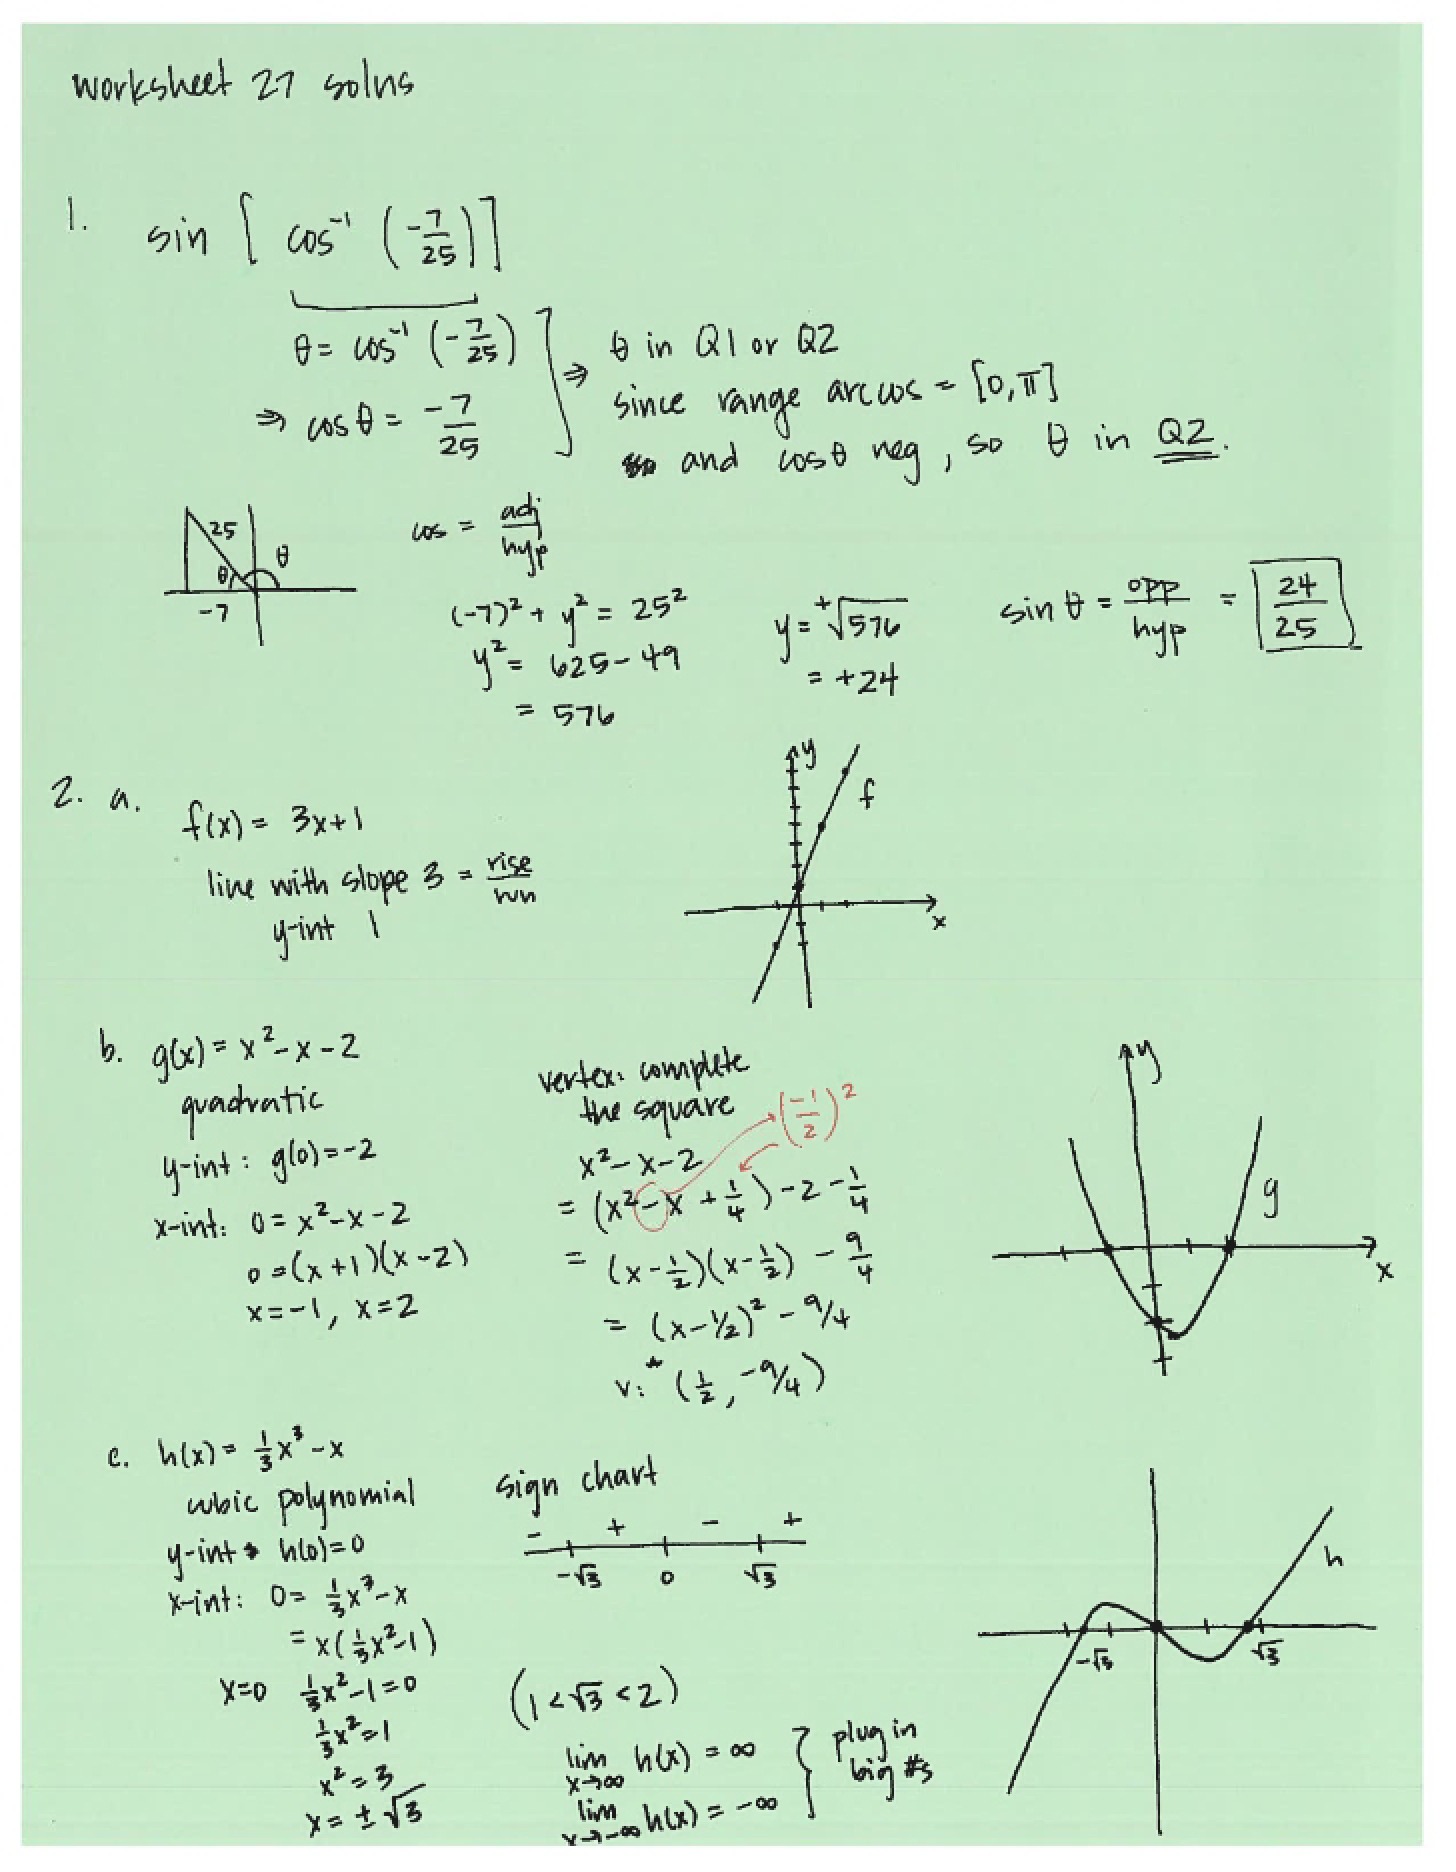 worksheet 27 solns
1. sin [ cos⁻¹ (-7/25) ]
θ = cos⁻¹ (-7/25)
⇒ cos θ = -7/25
⇒ θ in Q1 or Q2
since range arccos = [0, π]
and cos θ neg, so θ in Q2.
25
θ
θ
-7
cos = adj/hyp
(-7)² + y² = 25²
y² = 625 - 49
= 576
y = +√576
= +24
sin θ = opp/hyp = 24/25
2. a. f(x) = 3x+1
line with slope 3 = rise/run
y-int 1
y
f
x
b. g(x) = x² - x - 2
quadratic
y-int: g(0) = -2
x-int: 0 = x² - x - 2
0 = (x+1)(x-2)
x = -1, x = 2
vertex: complete
the square
(-1/2)²
x² - x - 2
= (x² - x + 1/4) - 2 - 1/4
= (x - 1/2)(x - 1/2) - 9/4
= (x - 1/2)² - 9/4
v: (1/2, -9/4)
y
g
x
c. h(x) = 1/3 x³ - x
cubic polynomial
y-int h(0) = 0
x-int: 0 = 1/3 x³ - x
= x(1/3 x² - 1)
x=0 1/3 x² - 1 = 0
1/3 x² = 1
x² = 3
x = ± √3
sign chart
- + - +
-√3 0 √3
(1 < √3 < 2)
lim x→∞ h(x) = ∞
lim x→-∞ h(x) = -∞
plug in
big #s
h
-√3
√3